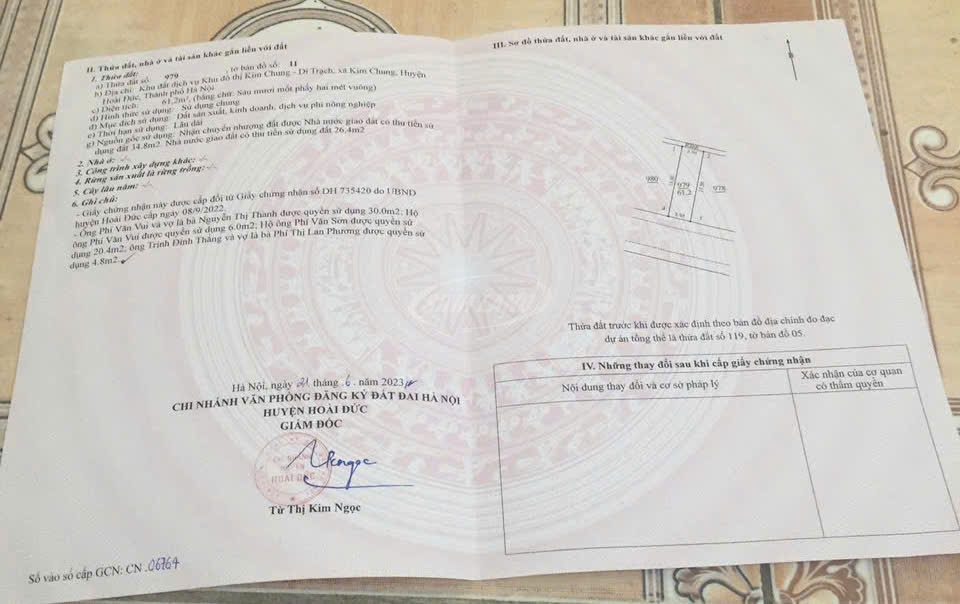 II. Thửa đất, nhà ở và tài sản khác gắn liền với đất
1. Thửa đất:
a) Thửa đất số: 979 , tờ bản đồ số: 11
b) Địa chỉ: Khu đất dịch vụ Khu đô thị Kim Chung - Di Trạch, xã Kim Chung, Huyện
Hoài Đức, Thành phố Hà Nội
c) Diện tích: 61,2m², (bằng chữ: Sáu mươi mốt phẩy hai mét vuông)
d) Hình thức sử dụng: Sử dụng chung
đ) Mục đích sử dụng: Đất sản xuất, kinh doanh, dịch vụ phi nông nghiệp
e) Thời hạn sử dụng: Lâu dài
g) Nguồn gốc sử dụng: Nhận chuyển nhượng đất được Nhà nước giao đất có thu tiền sử
dụng đất 34.8m2. Nhà nước giao đất có thu tiền sử dụng đất 26.4m2
2. Nhà ở: -/-
3. Công trình xây dựng khác: -/-
4. Rừng sản xuất là rừng trồng: -/-
5. Cây lâu năm: -/-
6. Ghi chú:
- Giấy chứng nhận này được cấp đổi từ Giấy chứng nhận số DH 735420 do UBND
huyện Hoài Đức cấp ngày 08/9/2022.
- Ông Phí Văn Vui và vợ là bà Nguyễn Thị Thanh được quyền sử dụng 30.0m2; Hộ
ông Phí Văn Vui được quyền sử dụng 6.0m2; Hộ ông Phí Văn Sơn được quyền sử
dụng 20.4m2; ông Trịnh Đình Thắng và vợ là bà Phí Thị Lan Phương được quyền sử
dụng 4.8m2.
Hà Nội, ngày 21 tháng 6 năm 2023
CHI NHÁNH VĂN PHÒNG ĐĂNG KÝ ĐẤT ĐAI HÀ NỘI
HUYỆN HOÀI ĐỨC
GIÁM ĐỐC
HOÀI ĐỨC
Từ Thị Kim Ngọc
Số vào sổ cấp GCN: CN 06764
III. Sơ đồ thửa đất, nhà ở và tài sản khác gắn liền với đất
980
979
61.2
978
Thửa đất trước khi được xác định theo bản đồ địa chính đo đạc
dự án tổng thể là thửa đất số 119, tờ bản đồ 05.
IV. Những thay đổi sau khi cấp giấy chứng nhận
Nội dung thay đổi và cơ sở pháp lý
Xác nhận của cơ quan
có thẩm quyền